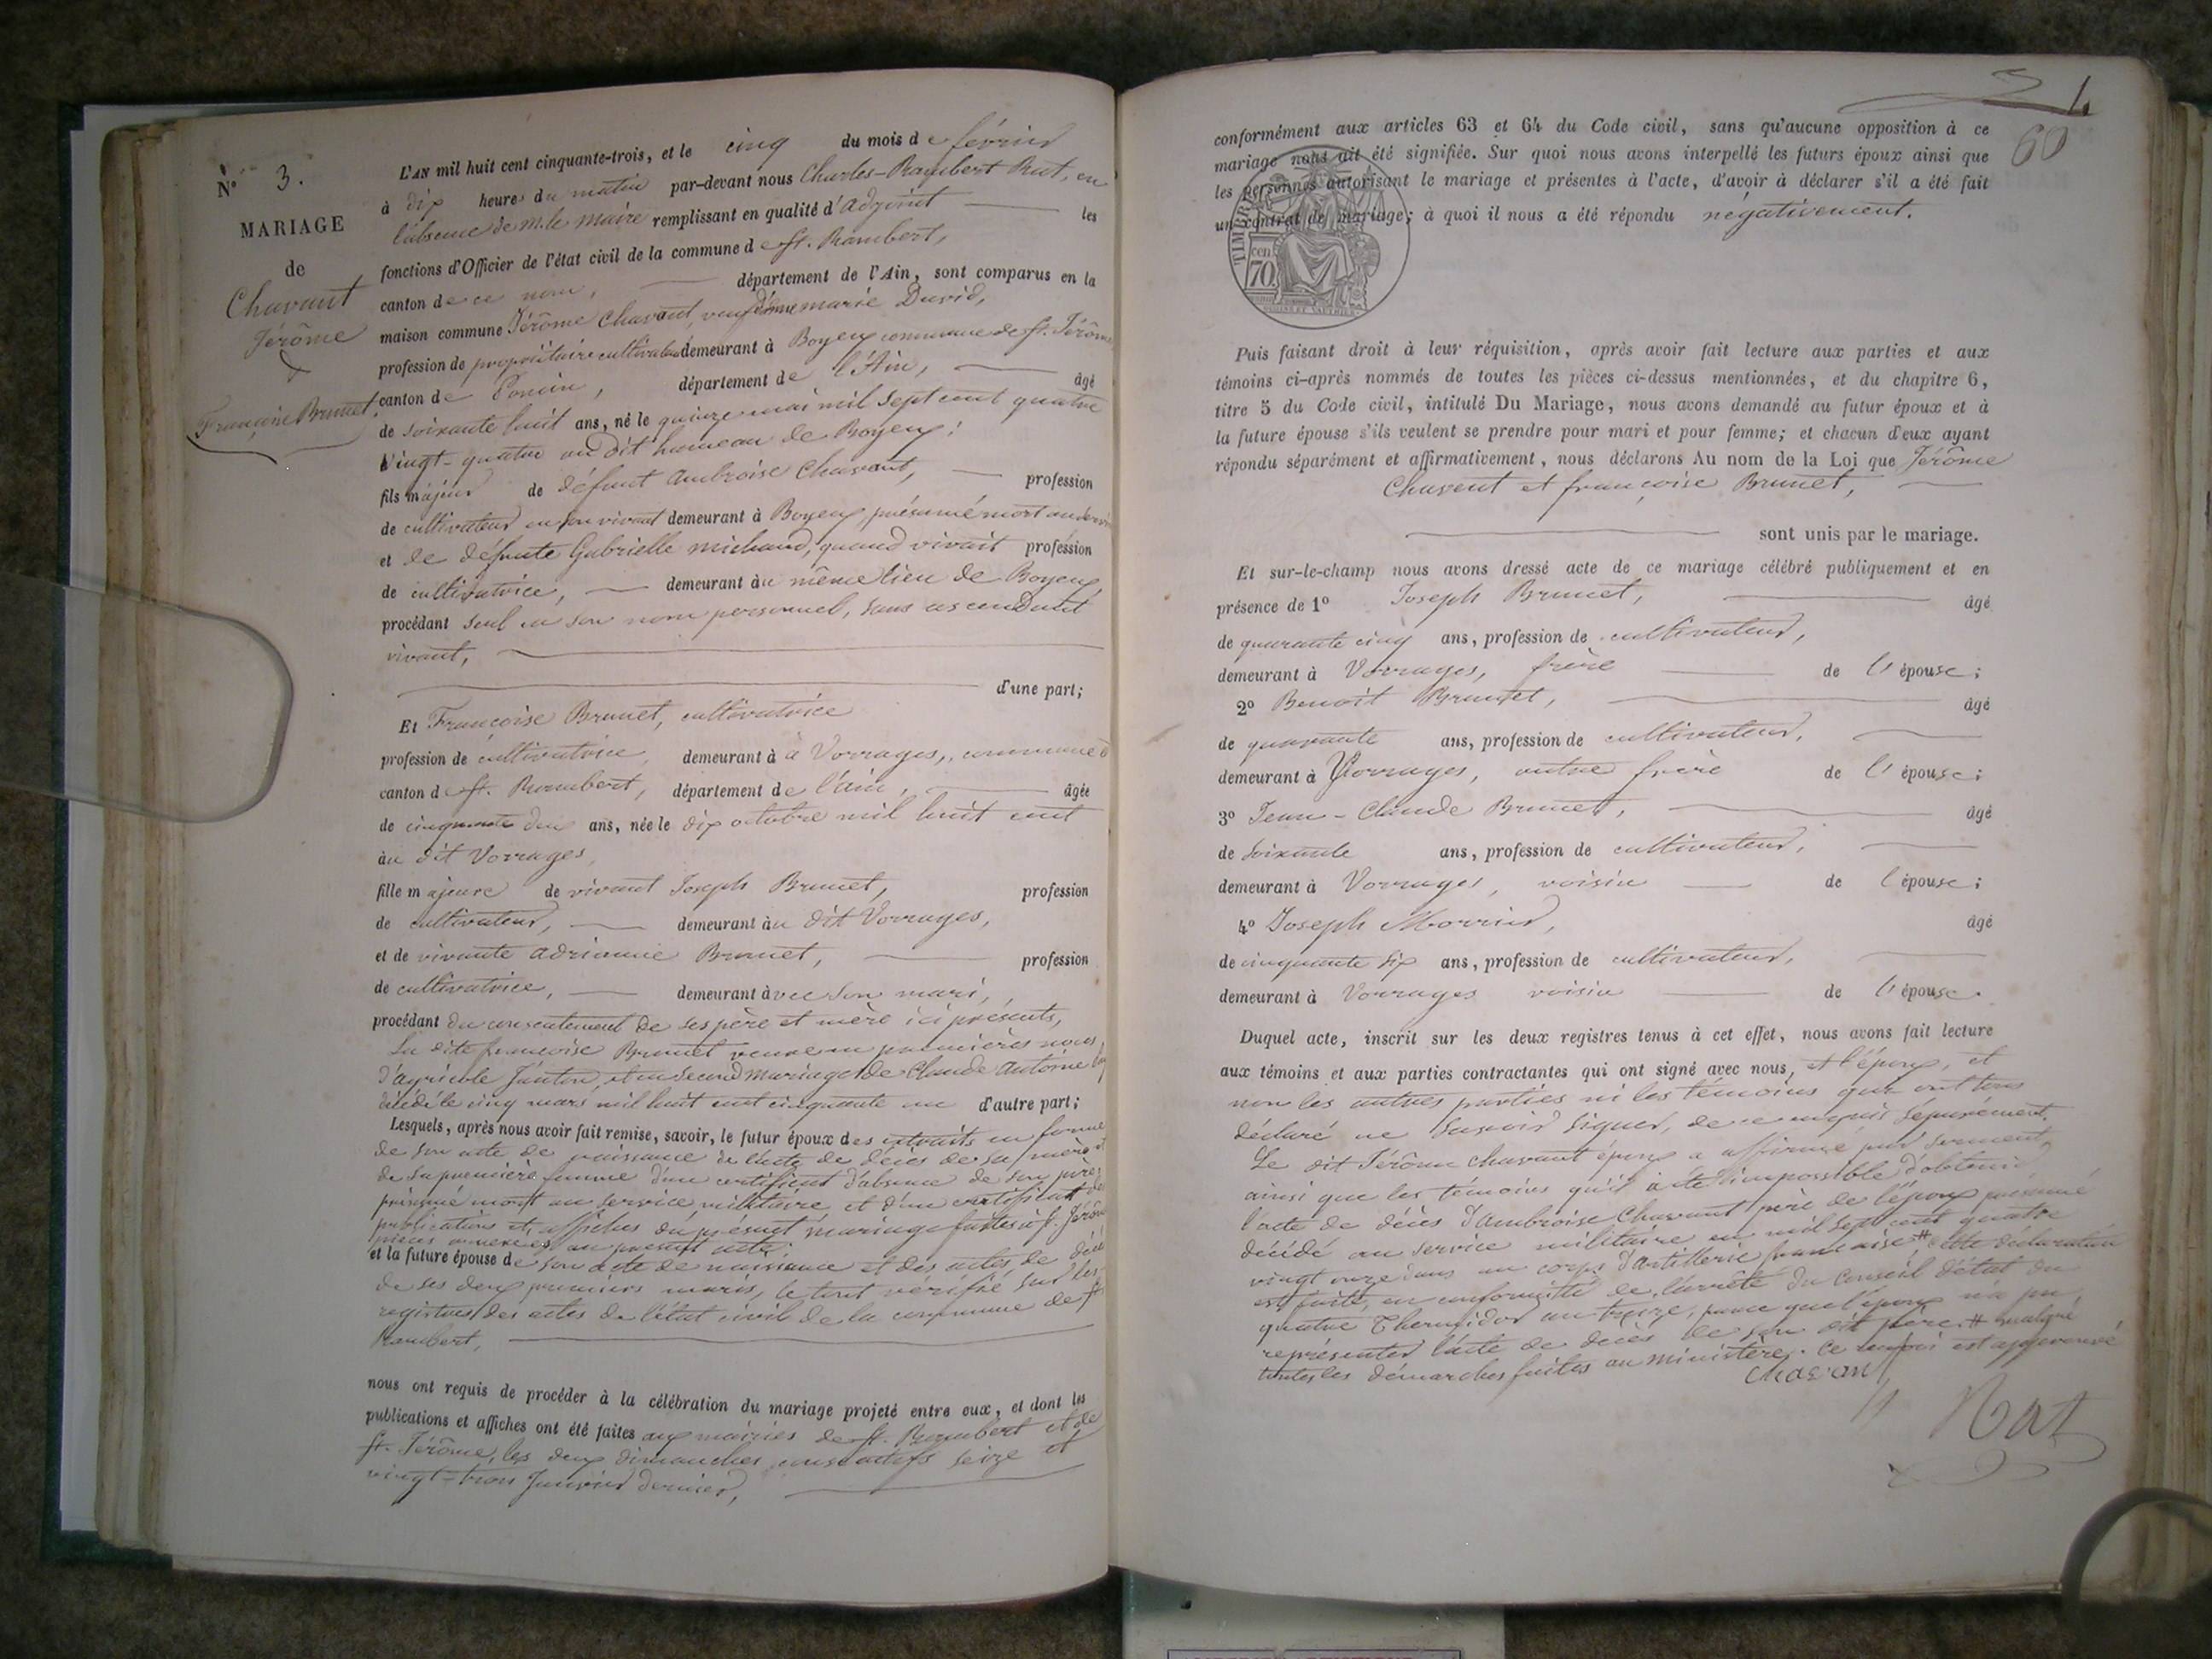 N° 3.
MARIAGE
de
Chavant
Jérôme
&
Françoise Brunet,
L'AN mil huit cent cinquante-trois, et le cinq du mois de février
à dix heures du matin par-devant nous Charles-Rambert Rut, en
l'absence de m. le maire remplissant en qualité d'adjoint les
fonctions d'Officier de l'état civil de la commune de st. Rambert,
canton de ce nom, département de l'Ain, sont comparus en la
maison commune Jérôme Chavant, veuf d'anne marie David,
profession de propriétaire cultivateur demeurant à Boyeux commune de st. Jérôme
canton de Poncin, département de l'Ain, âgé
de soixante huit ans, né le quinze mai mil sept cent quatre
vingt-quatre au dit hameau de Boyeux;
fils majeur de défunt Ambroise Chavant, profession
de cultivateur en son vivant demeurant à Boyeux présumé mort au service
et de défunte Gabrielle michaud, quand vivait profession
de cultivatrice, demeurant au même lieu de Boyeux,
procédant seul en son nom personnel, sans ascendant
vivant,
d'une part;
Et Françoise Brunet, cultivatrice
profession de cultivatrice, demeurant à à Vorrages, commune
canton de st. Rambert, département de l'ain, âgée
de cinquante deux ans, née le dix octobre mil huit cent
au dit Vorrages,
fille majeure de vivant Joseph Brunet, profession
de cultivateur, demeurant au dit Vorrages,
et de vivante adrianne Brunet, profession
de cultivatrice, demeurant avec son mari,
procédant du consentement de ses père et mère ici présents,
La dite françoise Brunet veuve en premières noces
d'agricole Janton, et en second mariage de Claude Antoine
décédé le cinq mars mil huit cent cinquante un d'autre part;
Lesquels, après nous avoir fait remise, savoir, le futur époux des extraits en forme
de son acte de naissance de l'acte de décès de sa mère et
de sa première femme d'un certificat d'absence de son père
présumé mort au service militaire et d'un certificat des
publications et affiches du présent mariage faites à st. Jérôme
pièces annexées au present acte;
et la future épouse de son acte de naissance et des actes de décès
de ses deux premiers maris, le tout vérifié sur les
registres des actes de l'état civil de la commune de st
Rambert,
nous ont requis de procéder à la célébration du mariage projeté entre eux, et dont les
publications et affiches ont été faites aux mairies de st. Rambert et de
st. Jérôme, les deux dimanches consécutifs seize et
vingt-trois Janvier dernier,
1.
60
conformément aux articles 63 et 64 du Code civil, sans qu'aucune opposition à ce
mariage nous ait été signifiée. Sur quoi nous avons interpellé les futurs époux ainsi que
les personnes autorisant le mariage et présentes à l'acte, d'avoir à déclarer s'il a été fait
un contrat de mariage; à quoi il nous a été répondu négativement.
TIMBRE
cen
70
Puis faisant droit à leur réquisition, après avoir fait lecture aux parties et aux
témoins ci-après nommés de toutes les pièces ci-dessus mentionnées, et du chapitre 6,
titre 5 du Code civil, intitulé Du Mariage, nous avons demandé au futur époux et à
la future épouse s'ils veulent se prendre pour mari et pour femme; et chacun d'eux ayant
répondu séparément et affirmativement, nous déclarons Au nom de la Loi que Jérôme
Chavent et françoise Brunet,
sont unis par le mariage.
Et sur-le-champ nous avons dressé acte de ce mariage célébré publiquement et en
présence de 1° Joseph Brunet, âgé
de quarante cinq ans, profession de cultivateur,
demeurant à Vorrages, frère de l'épouse;
2° Benoît Brunet, âgé
de quarante ans, profession de cultivateur,
demeurant à Vorrages, autre frère de l'épouse;
3° Jean-Claude Brunet, âgé
de soixante ans, profession de cultivateur,
demeurant à Vorrages, voisin de l'épouse;
4° Joseph Morrier, âgé
de cinquante six ans, profession de cultivateur,
demeurant à Vorrages voisin de l'épouse.
Duquel acte, inscrit sur les deux registres tenus à cet effet, nous avons fait lecture
aux témoins et aux parties contractantes qui ont signé avec nous, et l'époux, et
non les autres parties ni les témoins qui ont tous
déclaré ne savoir signer, de ce requis séparément.
Le dit Jérôme Chavant époux a affirmé par serment,
ainsi que les témoins qu'il a été impossible d'obtenir
l'acte de décès d'ambroise Chavant père de l'époux présumé
décédé au service militaire en mil sept cent quatre
vingt onze dans un corps d'artillerie française # cette déclaration
est faite, en conformité de l'arrêté du Conseil d'état du
quatre Thermidor an treize, parce que l'époux n'a pu
représenter l'acte de décès de son dit père. # malgré
toutes les démarches faites au ministère. Ce renvoi est approuvé
Chavant
Rut